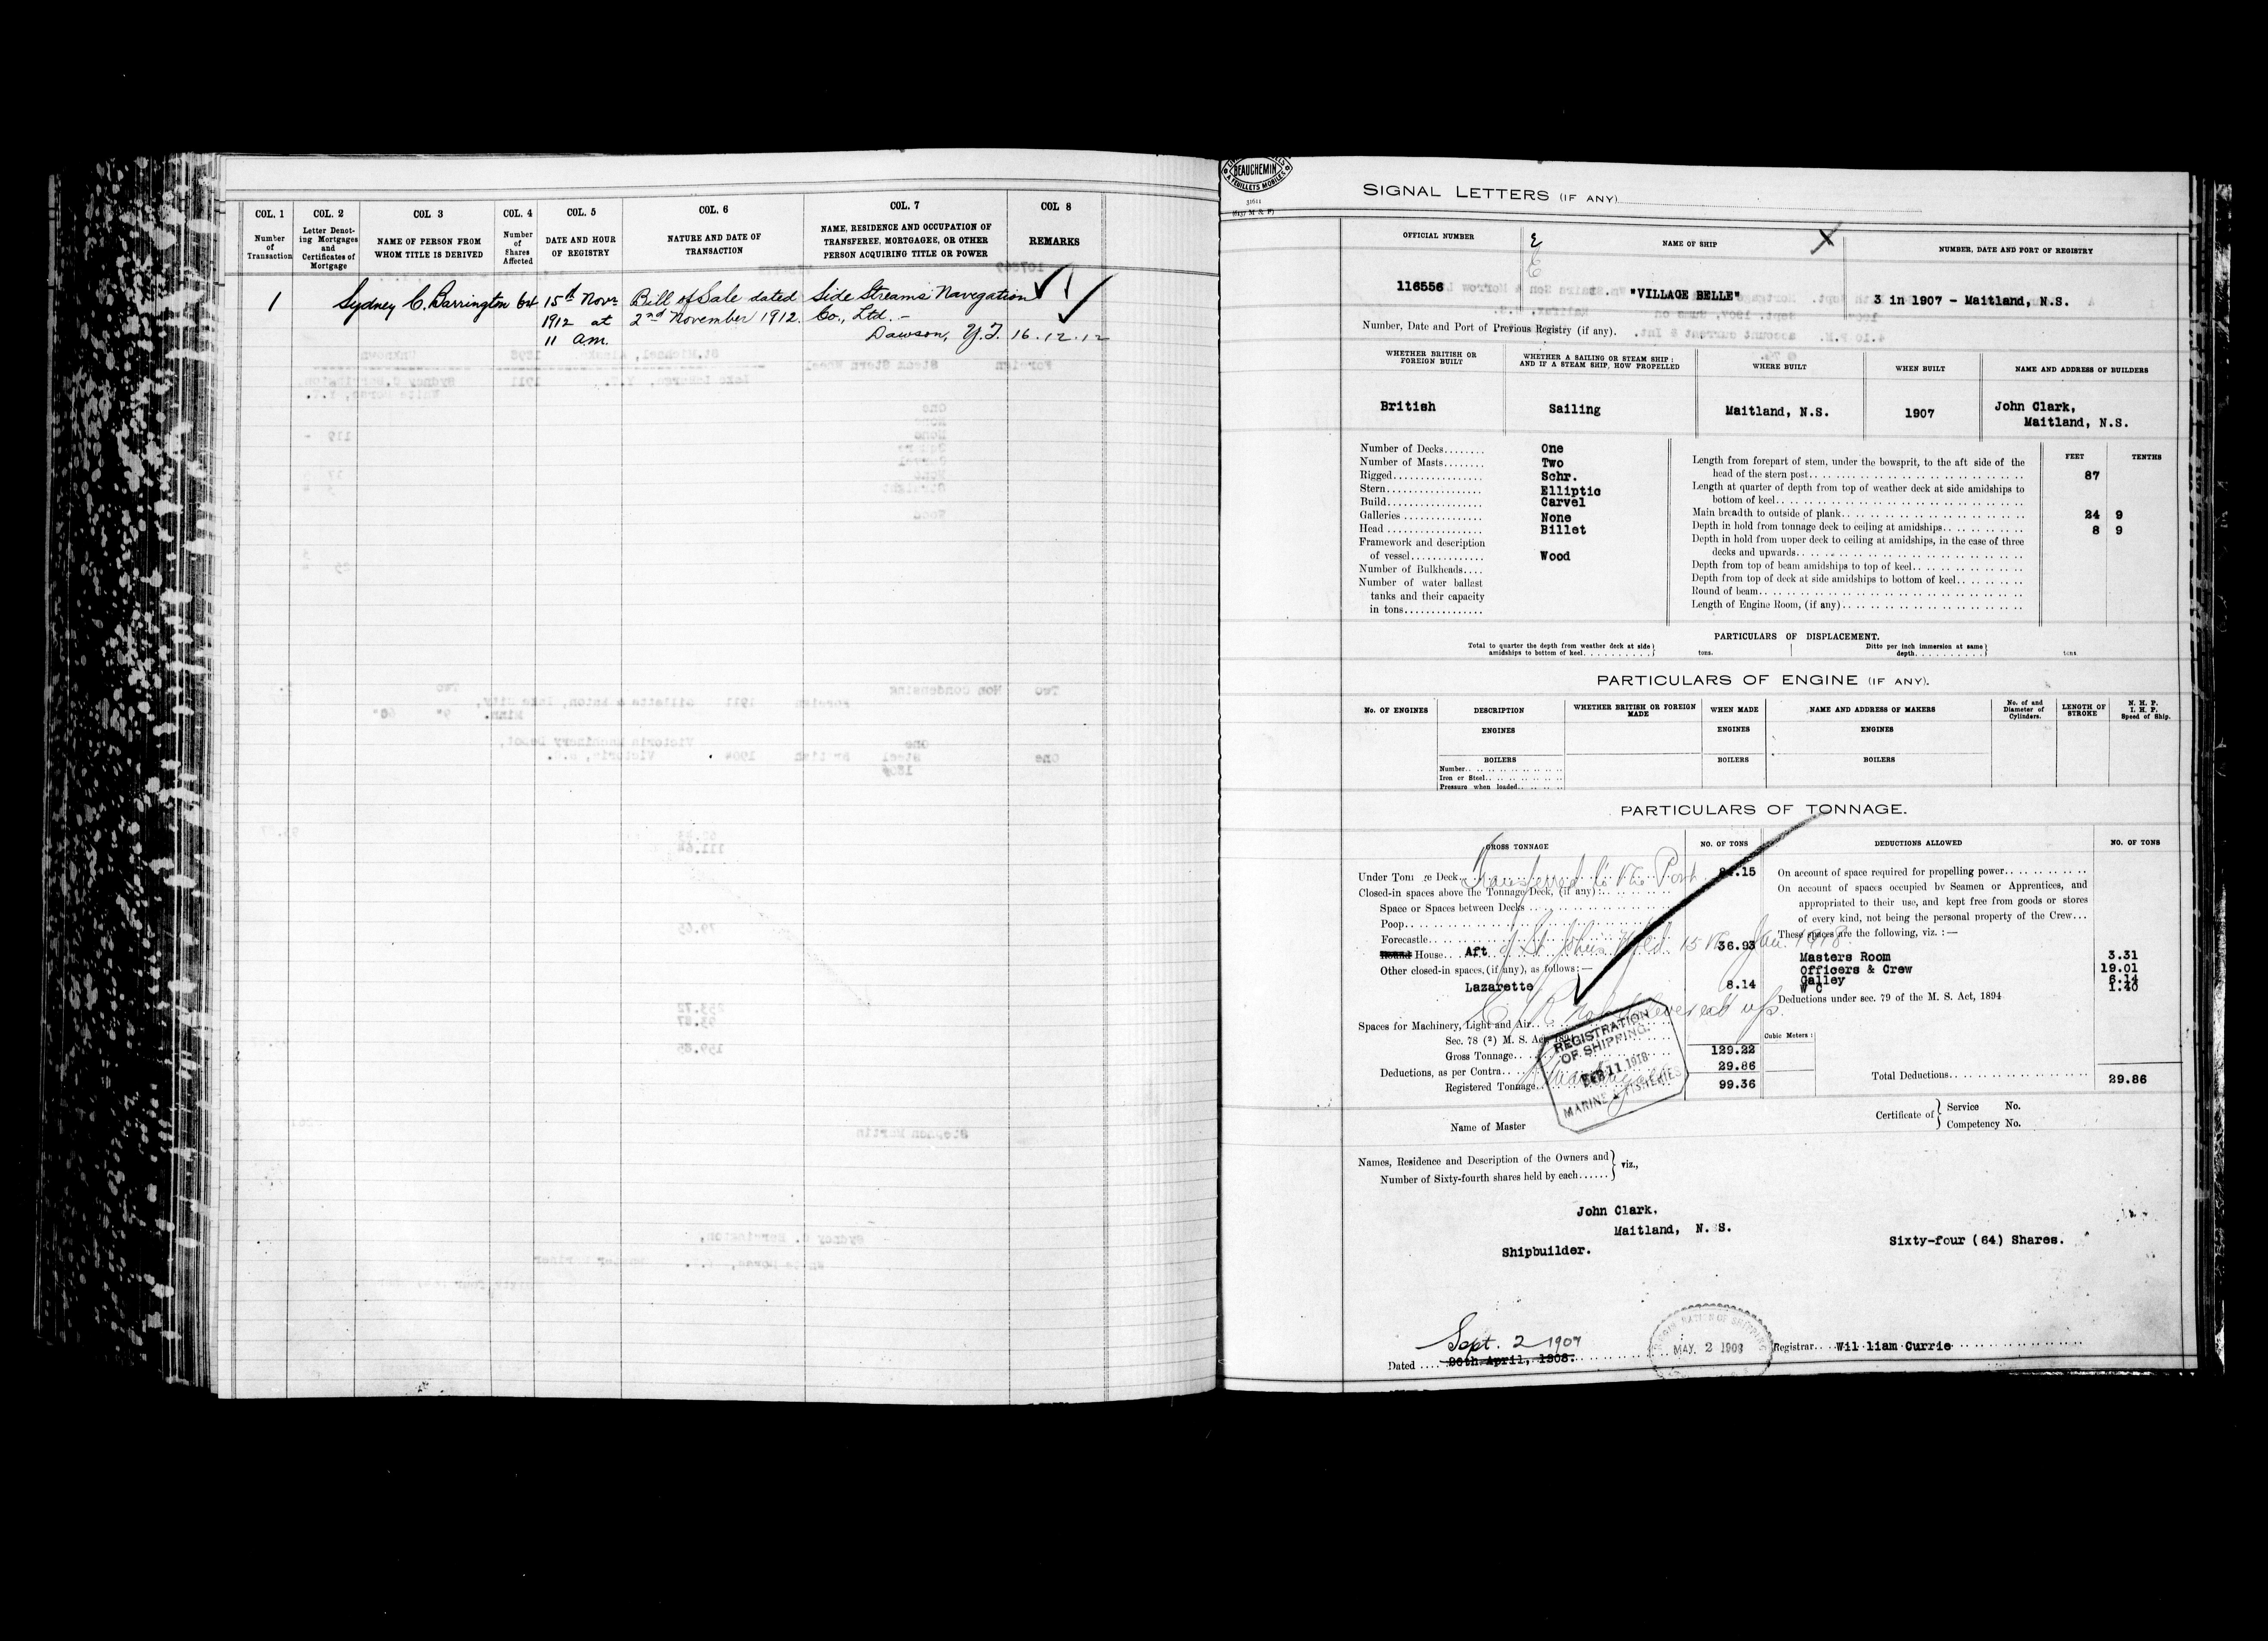 COL. 1 COL. 2 COL 3 COL. 4 COL. 5 COL. 6 COL. 7 COL 8
Number of Transaction
Letter Denoting Mortgages and Certificates of Mortgage
NAME OF PERSON FROM WHOM TITLE IS DERIVED
Number of Shares Affected
DATE AND HOUR OF REGISTRY
NATURE AND DATE OF TRANSACTION
NAME, RESIDENCE AND OCCUPATION OF TRANSFEREE, MORTGAGEE, OR OTHER PERSON ACQUIRING TITLE OR POWER
REMARKS
1 Sydney C. Barrington 64 15th Novr Bill of Sale dated Side Streams Navigation
1912 at 2nd November 1912. Co., Ltd. -
11 a.m. Dawson, Y.T. 16.12.12
BEAUCHEMIN
& FEUILLETS MOBILES
SIGNAL LETTERS (IF ANY)
OFFICIAL NUMBER NAME OF SHIP NUMBER, DATE AND PORT OF REGISTRY
116556 "VILLAGE BELLE" 3 in 1907 - Maitland, N.S.
Number, Date and Port of Previous Registry (if any).
WHETHER BRITISH OR FOREIGN BUILT
WHETHER A SAILING OR STEAM SHIP; AND IF A STEAM SHIP, HOW PROPELLED
WHERE BUILT
WHEN BUILT
NAME AND ADDRESS OF BUILDERS
British Sailing Maitland, N.S. 1907 John Clark,
Maitland, N.S.
Number of Decks........ One
Number of Masts........ Two
Rigged................ Schr.
Stern.................. Elliptic
Build.................. Carvel
Galleries ............... None
Head .................. Billet
Framework and description
of vessel.............. Wood
Number of Bulkheads....
Number of water ballast
tanks and their capacity
in tons...............
FEET TENTHS
Length from forepart of stem, under the bowsprit, to the aft side of the
head of the stern post 87
Length at quarter of depth from top of weather deck at side amidships to
bottom of keel
Main breadth to outside of plank 24 9
Depth in hold from tonnage deck to ceiling at amidships 8 9
Depth in hold from upper deck to ceiling at amidships, in the case of three
decks and upwards
Depth from top of beam amidships to top of keel
Depth from top of deck at side amidships to bottom of keel
Round of beam
Length of Engine Room, (if any)
PARTICULARS OF DISPLACEMENT.
Total to quarter the depth from weather deck at side
amidships to bottom of keel tons.
Ditto per inch immersion at same
depth tons
PARTICULARS OF ENGINE (IF ANY).
No. OF ENGINES
DESCRIPTION
WHETHER BRITISH OR FOREIGN MADE
WHEN MADE
NAME AND ADDRESS OF MAKERS
No. of and Diameter of Cylinders.
LENGTH OF STROKE
N. H. P.
I. H. P.
Speed of Ship.
ENGINES ENGINES ENGINES
BOILERS BOILERS BOILERS
Number
Iron or Steel
Pressure when loaded
PARTICULARS OF TONNAGE.
GROSS TONNAGE NO. OF TONS DEDUCTIONS ALLOWED NO. OF TONS
Closed-in spaces above the Tonnage Deck, (if any) :
Space or Spaces between Decks
Poop
Forecastle
House Aft 36.93
Other closed-in spaces, (if any), as follows:—
Lazarette 8.14
Spaces for Machinery, Light and Air
Gross Tonnage 129.22
Deductions, as per Contra 29.86
Registered Tonnage 99.36
Transferred to the Port
of St John's Nfld. 15th Jan. 1918.
On account of space required for propelling power
On account of spaces occupied by Seamen or Apprentices, and
appropriated to their use, and kept free from goods or stores
of every kind, not being the personal property of the Crew...
These spaces are the following, viz. :—
Masters Room 3.31
Officers & Crew 19.01
Galley 6.14
W C 1.40
Deductions under sec. 79 of the M. S. Act, 1894
Cubic Meters :
Total Deductions 29.86
REGISTRATION
OF SHIPPING
FEB 11 1918
MARINE & FISHERIES
Name of Master
Certificate of Service No.
Competency No.
Names, Residence and Description of the Owners and
Number of Sixty-fourth shares held by each...... viz.,
John Clark,
Maitland, N. S.
Shipbuilder. Sixty-four (64) Shares.
Sept. 2 1907
Dated .... 26th April, 1908.
MAY. 2 1908
Registrar... William Currie